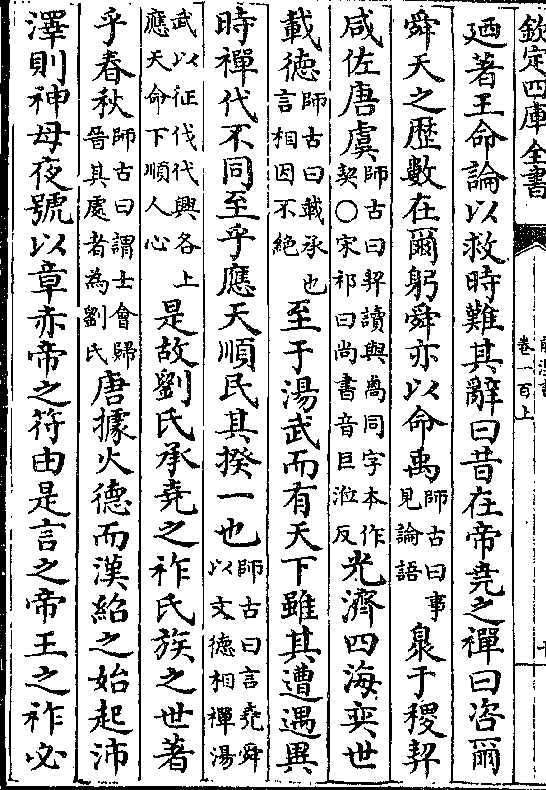 欽定四庫全書
卷一百上
廼著王命論以救時難其辭曰昔在帝堯之禪曰咨爾
舜天之歴數在爾躬舜亦以命禹師古曰事見論語臮于稷契
咸佐唐虞師古曰契讀與卨同字本作契〇宋祁曰尚書音巨涖反光濟四海奕世
載德師古曰載承也言相因不絶至于湯武而有天下雖其遭遇異
時禪代不同至乎應天順民其揆一也師古曰言堯舜以文德相禪湯
武以征伐代興各上應天命下順人心是故劉氏承堯之祚氏族之世著
乎春秋師古曰謂士會歸晉其處者為劉氏唐據火德而漢紹之始起沛
澤則神母夜號以章赤帝之符由是言之帝王之祚必